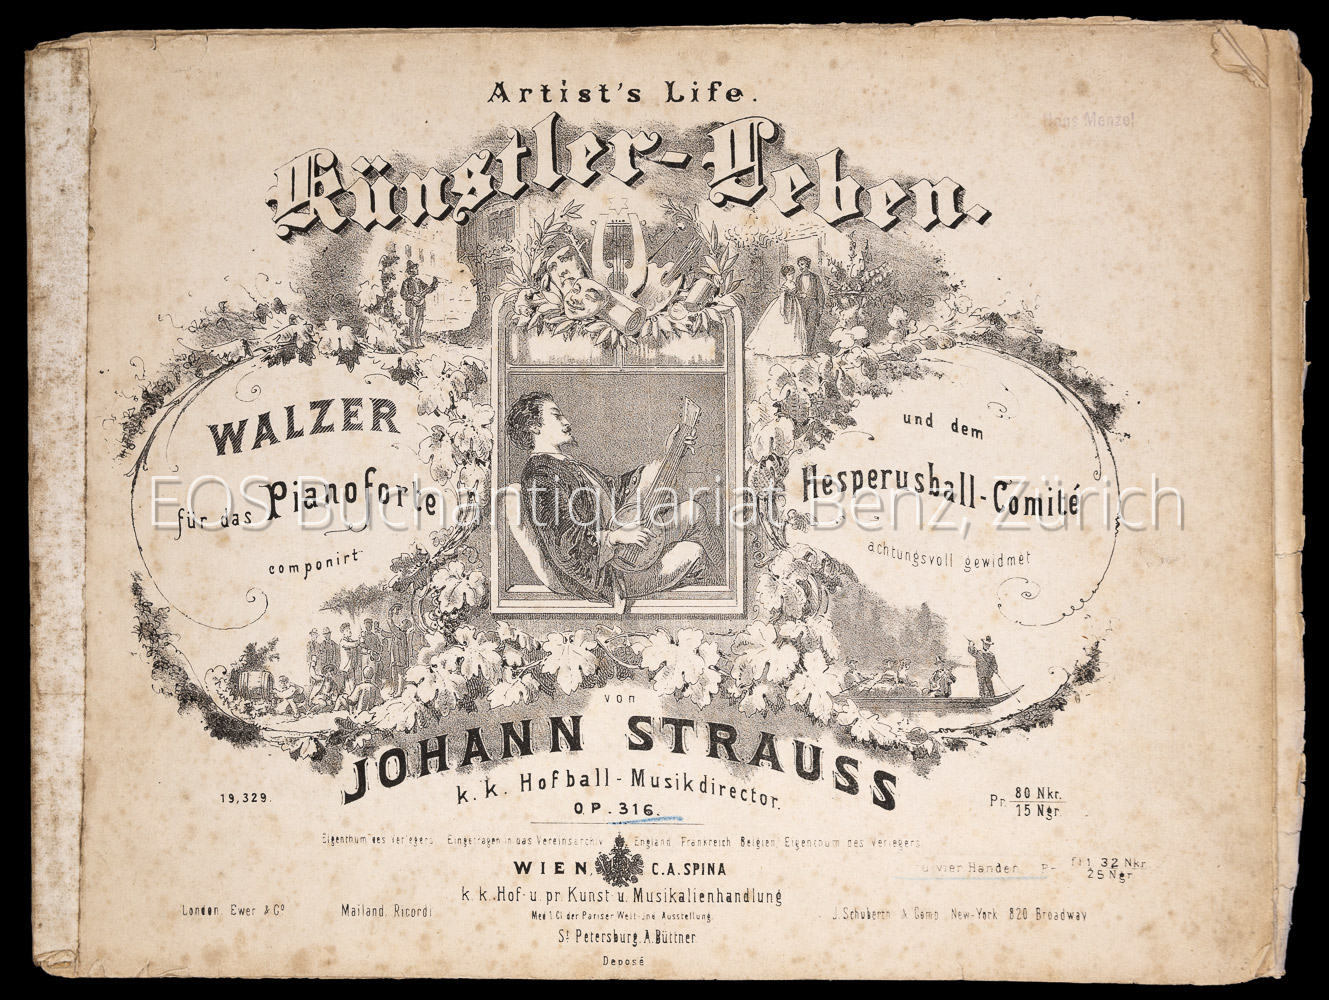 Artist's Life.
Hans Menzel
Künstler-Leben.
WALZER
für das Pianoforte
componirt
und dem
Hesperusball-Comité
achtungsvoll gewidmet
EOS Buchantiquariat Benz, Zürich
von
JOHANN STRAUSS
k. k. Hofball-Musikdirector.
OP. 316.
19,329.
Pr. 80 Nkr.
15 Ngr.
Eigenthum des Verlegers. Eingetragen in das Vereinsarchiv. England, Frankreich Belgien, Eigenthum des Verlegers
WIEN, C.A. SPINA
zu vier Händen Pr. fl 1 32 Nkr
25 Ngr
k. k. Hof- u. pr. Kunst- u. Musikalienhandlung
London, Ewer & Co Mailand, Ricordi
Med 1. Cl. der Pariser Welt- Ausstellung.
J. Schuberth & Comp. New-York 820 Broadway
St Petersburg, A. Büttner
Deposé